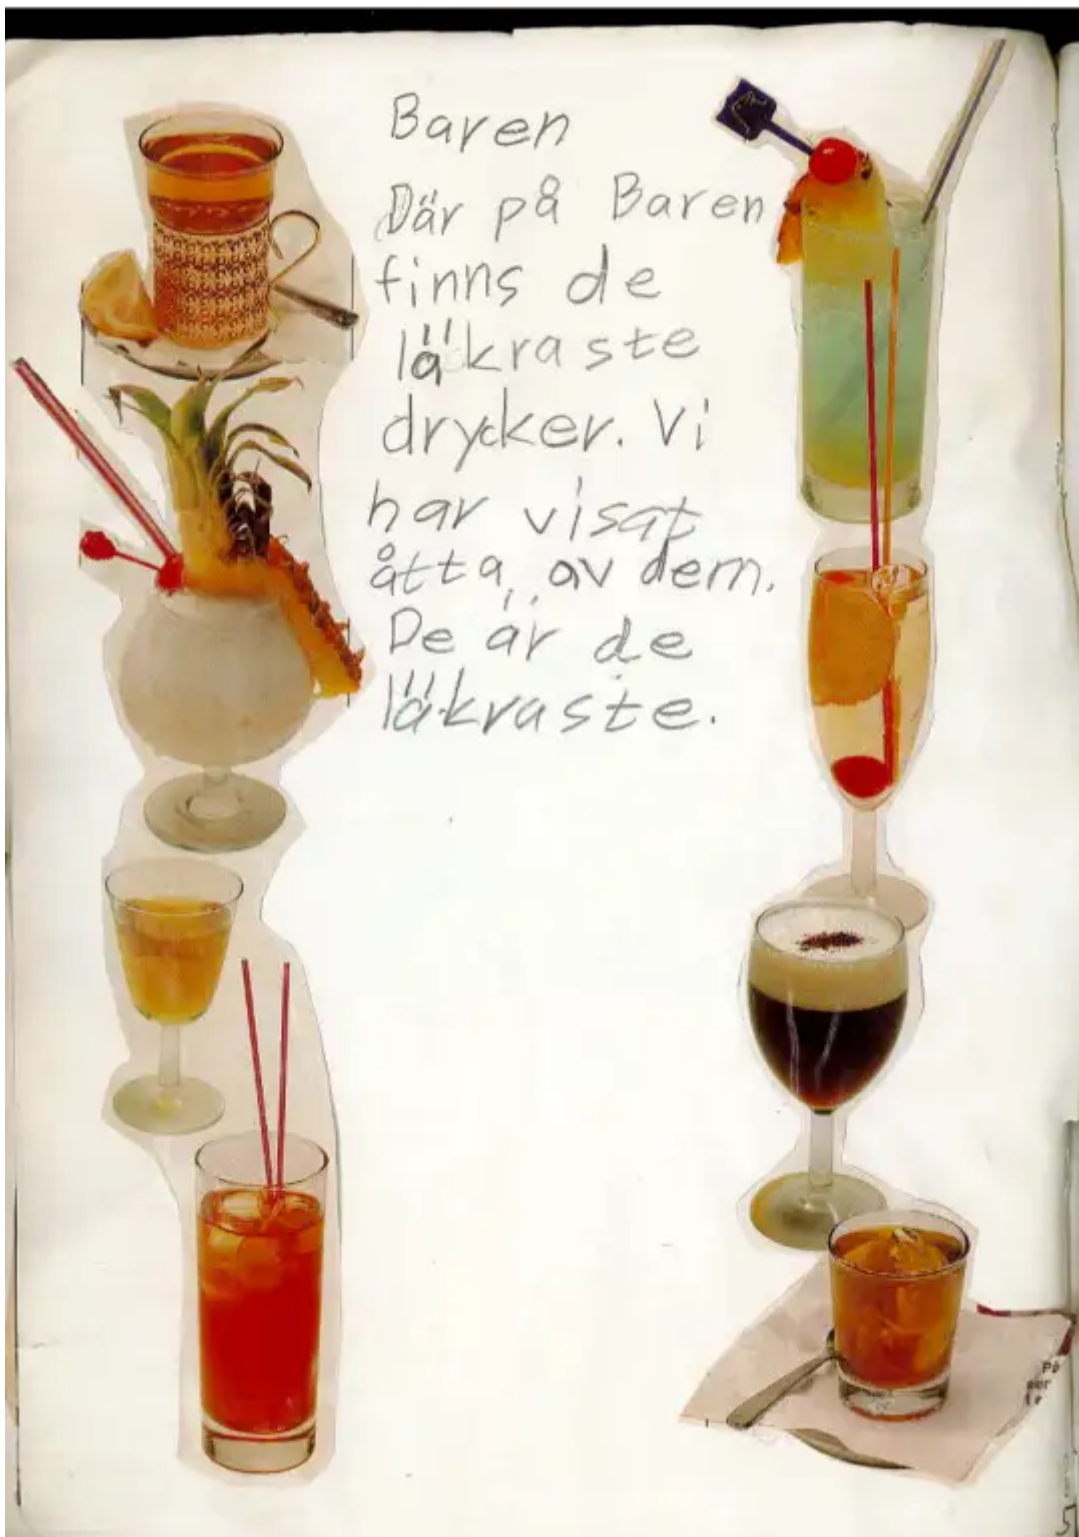 Baren
Där på Baren
finns de
läkraste
drycker. Vi
har visat
åtta av dem.
De är de
läkraste.
På
5